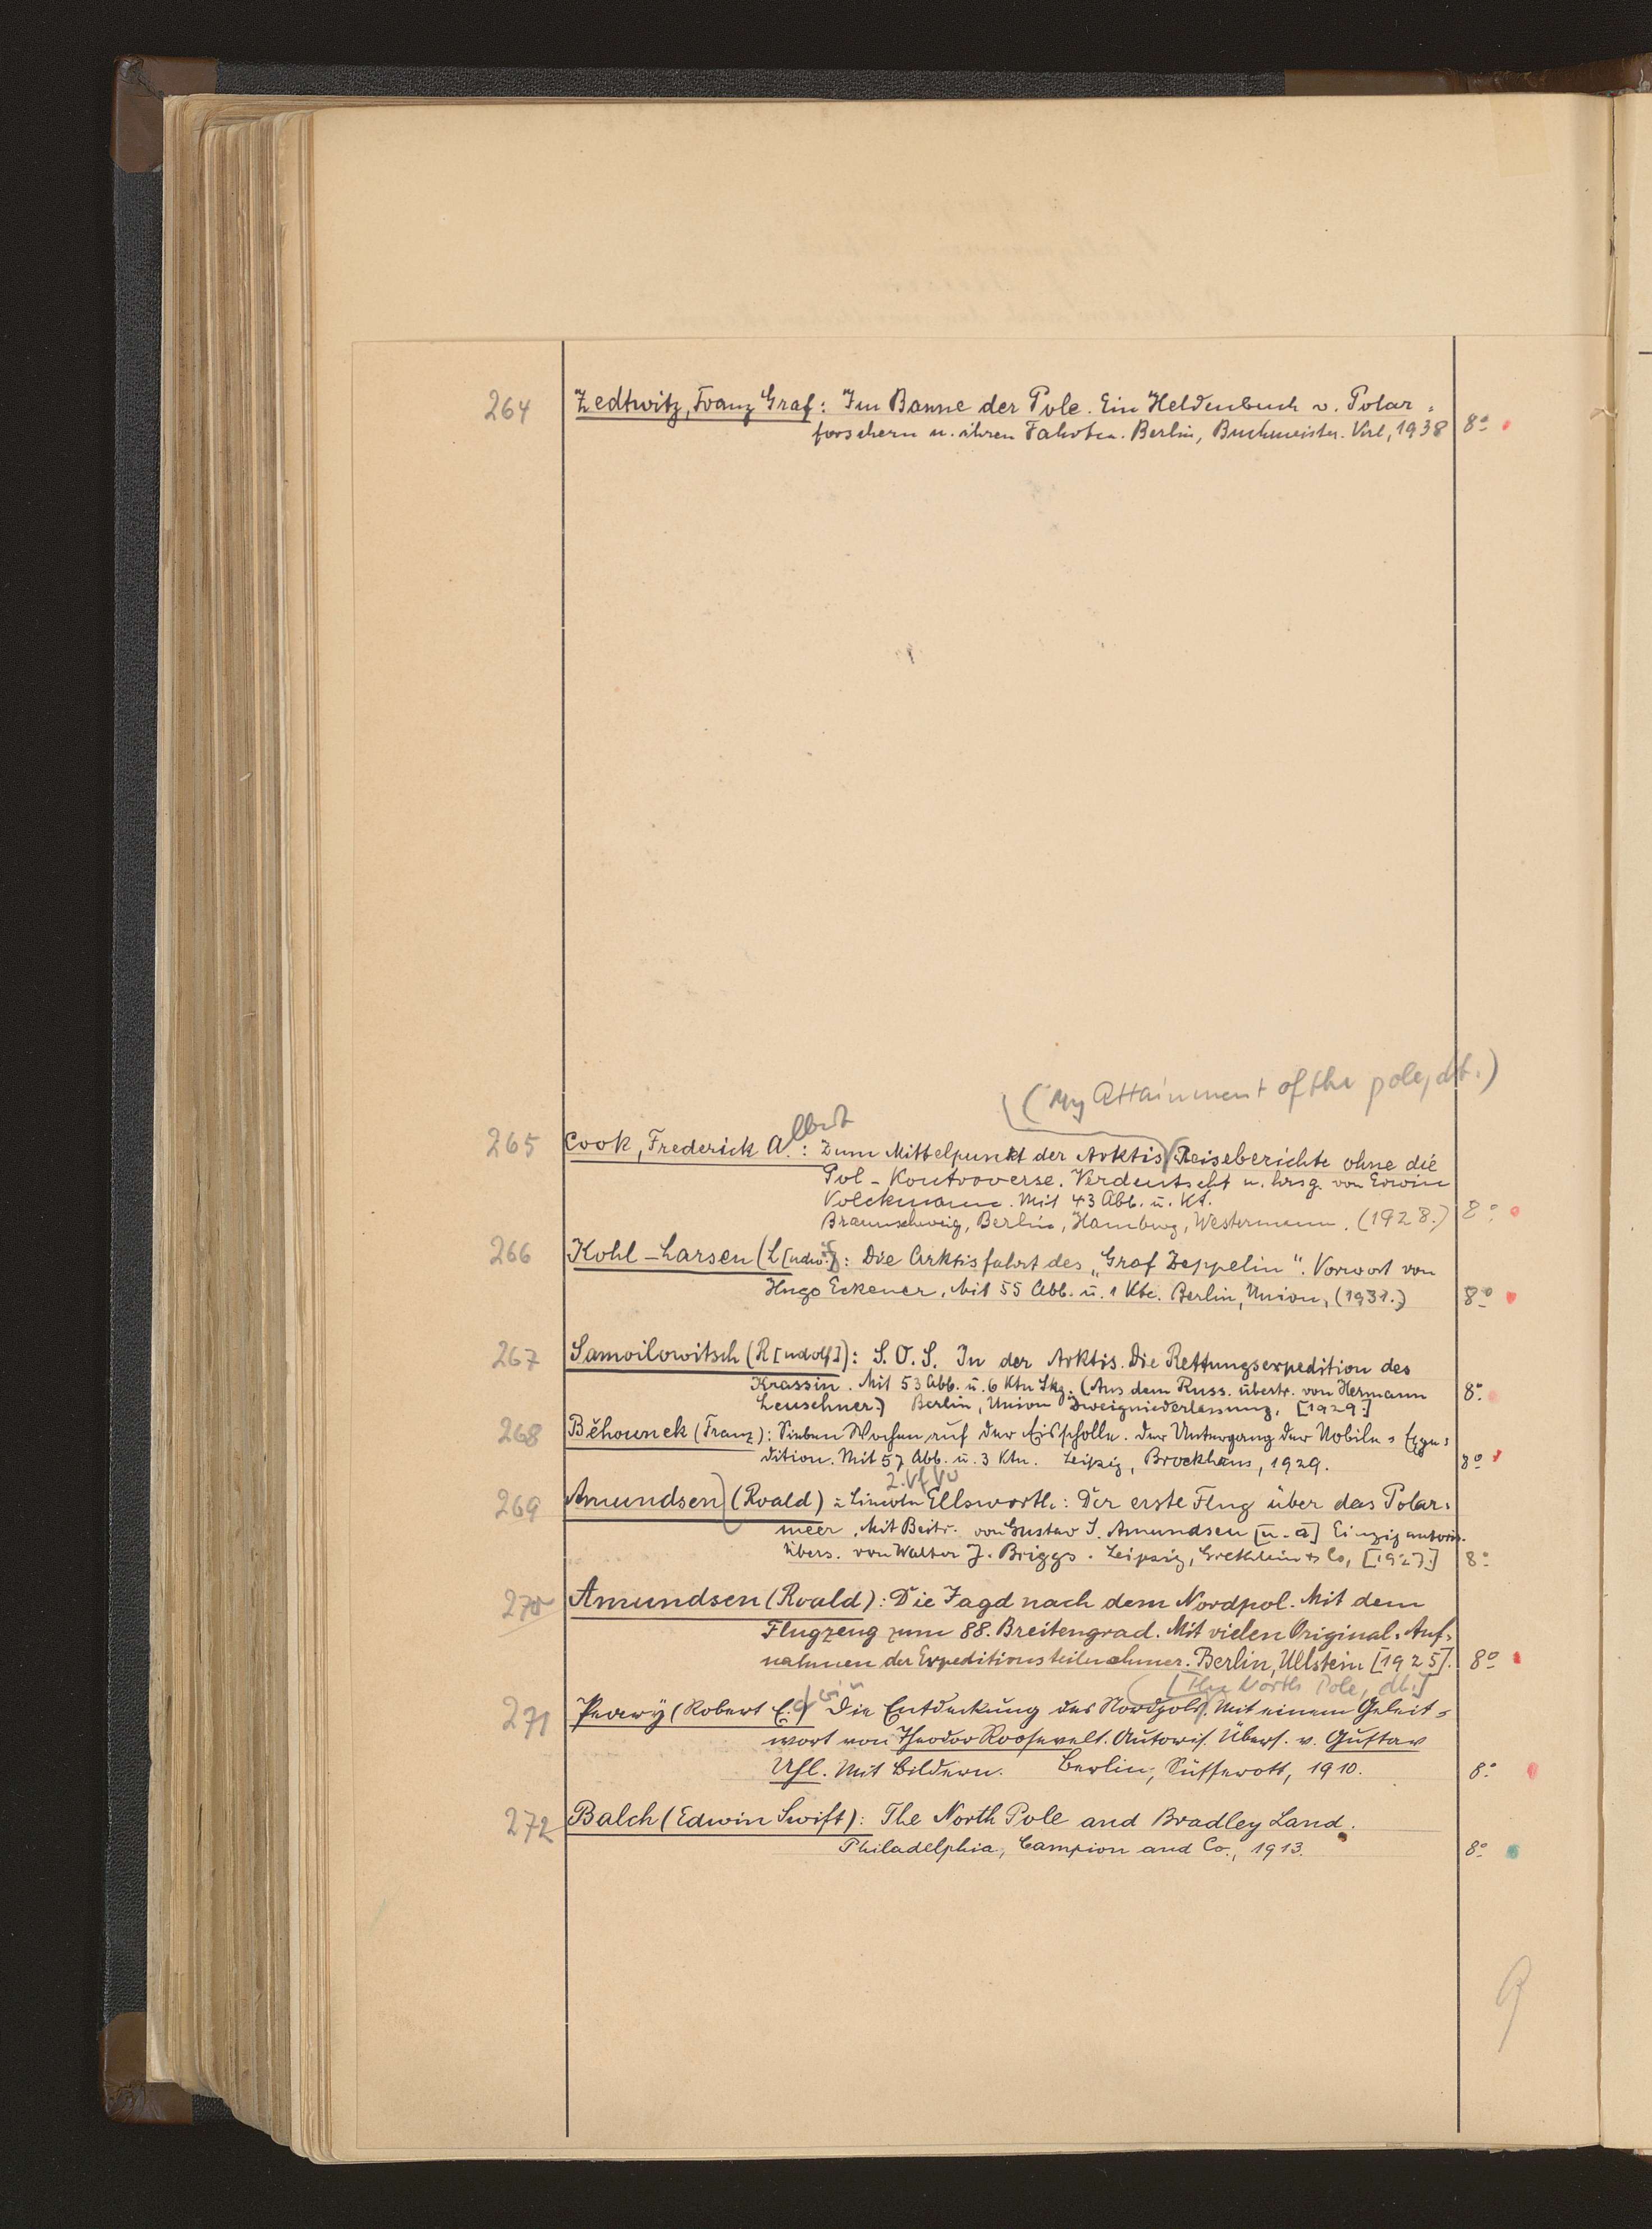 264 Zedtwitz, Franz Graf: Im Banne der Pole. Ein Heldenbuch v. Polar=
forschern u. ihren Fahrten. Berlin, Buchmeister-Verl, 1938 8°
(My Attainment of the pole, dt.)
lbert
265 Cook, Frederick A.: Zum Mittelpunkt der Arktis. Reiseberichte ohne die
Pol-Kontroverse. Verdeutscht u. hrsg. von Erwin
Volckmann. Mit 43 Abb. u. Kt.
Braunschweig, Berlin, Hamburg, Westermann. (1928.) 8°
266 Kohl-Larsen (L[udw.]): Die Arktisfahrt des „Graf Zeppelin“. Vorwort von
Hugo Eckener. Mit 55 Abb. u. 1 Kte. Berlin, Union, (1931.) 8°
267 Samoilowitsch (R[udolf]): S.O.S. In der Arktis. Die Rettungsexpedition des
Krassin. Mit 53 Abb. u. 6 Ktn Skg. (Aus dem Russ. übertr. von Hermann 8°
Leuschner.) Berlin, Union Zweigniederlassung, [1929.]
268 Běhounek (Franz): Sieben Wochen auf der Eisscholle. Der Untergang der Nobile=Expe=
dition. Mit 57 Abb. u. 3 Ktn. Leipzig, Brockhaus, 1929. 8°
269 Amundsen (Roald) u Lincoln Ellsworth: Der erste Flug über das Polar=
meer. Mit Beitr. von Gustav S. Amundsen [u. a] Einzig autoris.
Übers. von Walter J. Briggs. Leipzig, Grethlein & Co, [1927.] 8°
270 Amundsen (Roald): Die Jagd nach dem Nordpol. Mit dem
Flugzeug zum 88. Breitengrad. Mit vielen Original=Auf=
nahmen der Expeditionsteilnehmer. Berlin, Ullstein [1925]. 8°
[The North Pole, dt.]
dwin
271 Peary (Robert E.) Die Entdeckung des Nordpols. Mit einem Geleit=
wort von Theodor Roosevelt. Autoris. Übers. v. Gustav
Uhl. Mit Bildern. Berlin, Süsserott, 1910. 8°
272 Balch (Edwin Swift): The North Pole and Bradley Land.
Philadelphia, Campion and Co., 1913. 8°